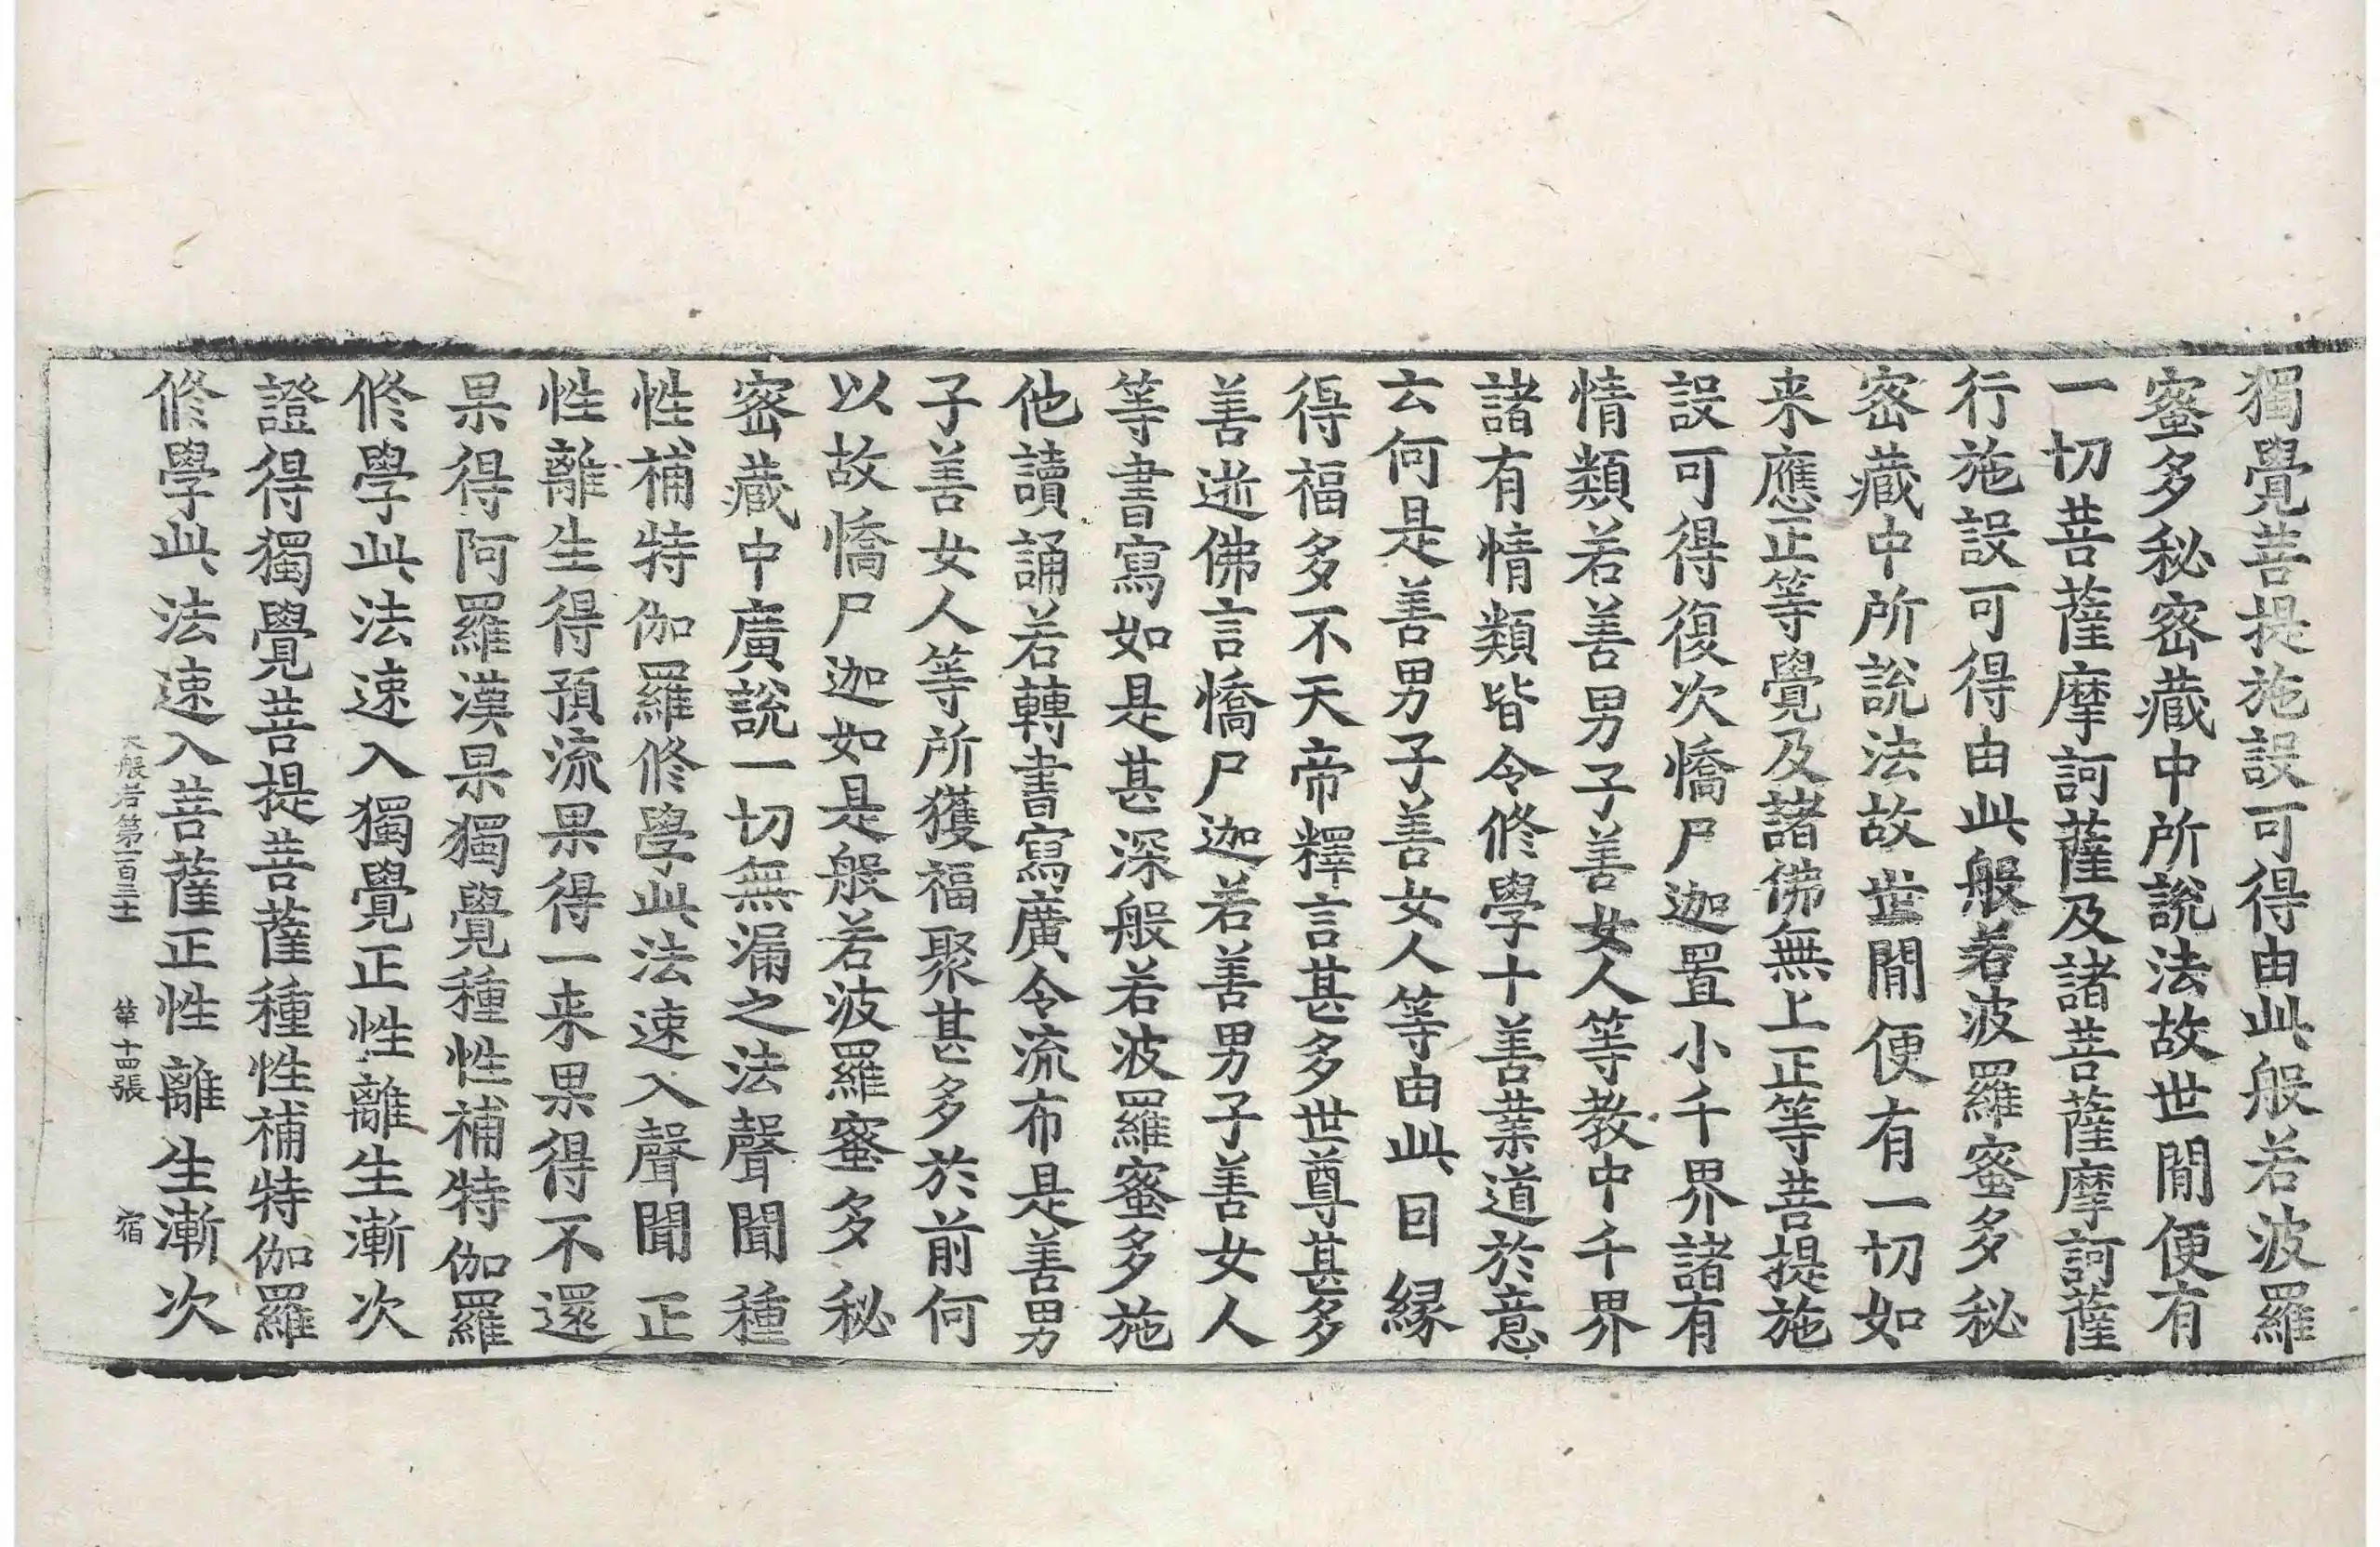 獨覺菩提施設可得由此般若波羅
蜜多秘密藏中所說法故世間便有
一切菩薩摩訶薩及諸菩薩摩訶薩
行施設可得由此般若波羅蜜多秘
密藏中所說法故世間便有一切如
来應正等覺及諸佛無上正等菩提施
設可得復次憍尸迦置小千界諸有
情類若善男子善女人等教中千界
諸有情類皆令修學十善業道於意
云何是善男子善女人等由此因緣
得福多不天帝釋言甚多世尊甚多
善逝佛言憍尸迦若善男子善女人
等書寫如是甚深般若波羅蜜多施
他讀誦若轉書寫廣令流布是善男
子善女人等所獲福聚甚多於前何
以故憍尸迦如是般若波羅蜜多秘
密藏中廣說一切無漏之法聲聞種
性補特伽羅修學此法速入聲聞正
性離生得預流果得一来果得不還
果得阿羅漢果獨覺種性補特伽羅
修學此法速入獨覺正性離生漸次
證得獨覺菩提菩薩種性補特伽羅
修學此法速入菩薩正性離生漸次
般若第一百三 第十四張 宿